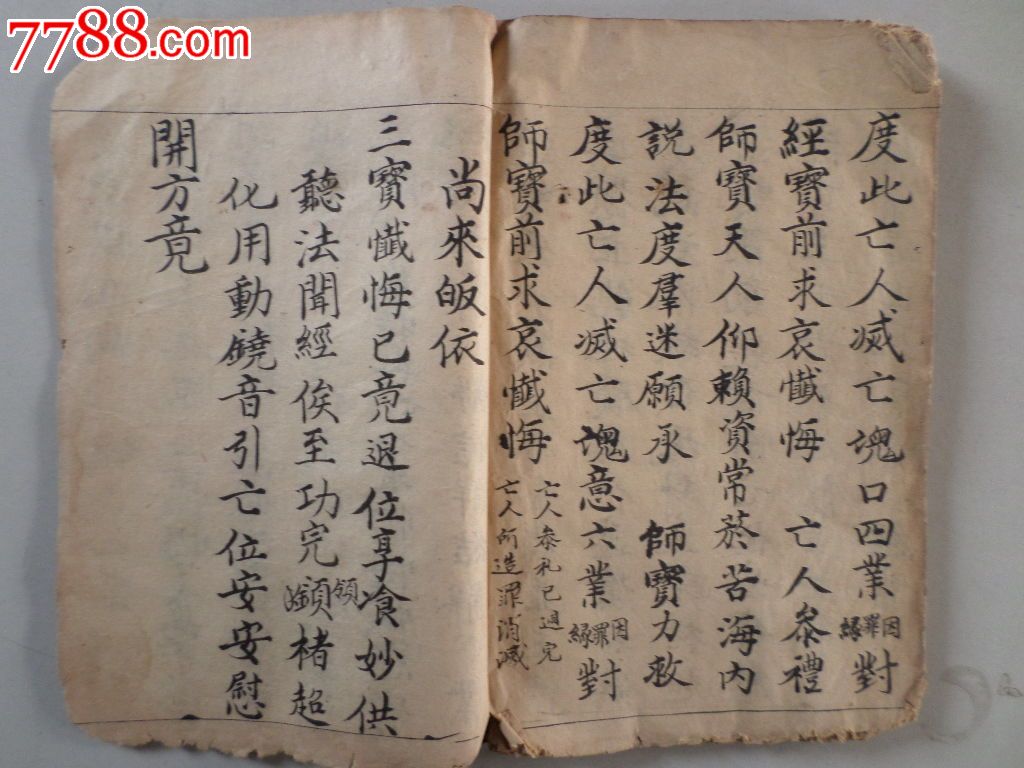 7788.com
度此亡人滅亡塊口四業罪因緣對
經寶前求哀懺悔 亡人叅禮
師寶天人仰賴資常於苦海内
説法度羣迷願承 師寶力救
度此亡人滅亡塊意六業罪因緣對
師寶前求哀懺悔
亡人叅礼已過完
亡人所造罪消滅
尚來皈依
三寶懺悔已竟退位享飡妙供
聽法聞經俟至功完領楮超
化用動鐃音引亡位安安慰
開方竟